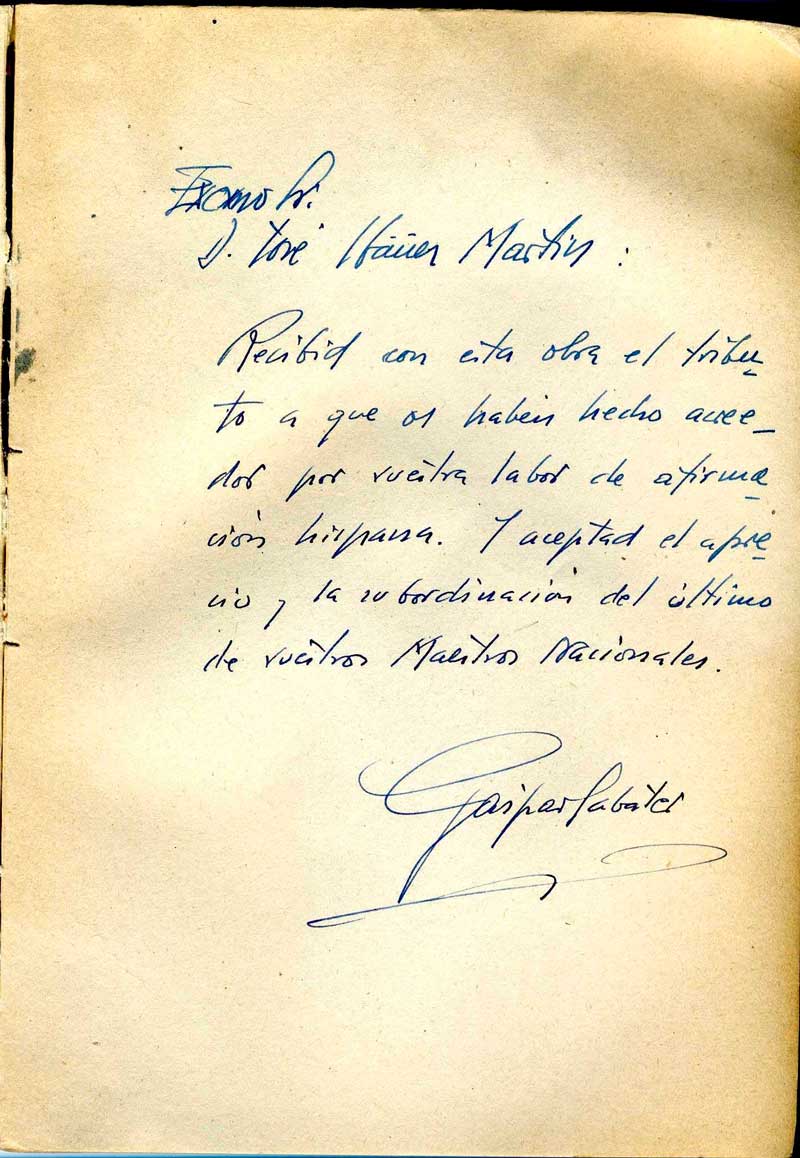 Excmo Sr.
D. José Ibáñez Martín :
Recibid con esta obra el tribu-
to a que os habéis hecho acree-
dor por vuestra labor de afirma-
ción hispana. Y aceptad el apre-
cio y la subordinación del último
de vuestros Maestros Nacionales.
Gaspar Sabater